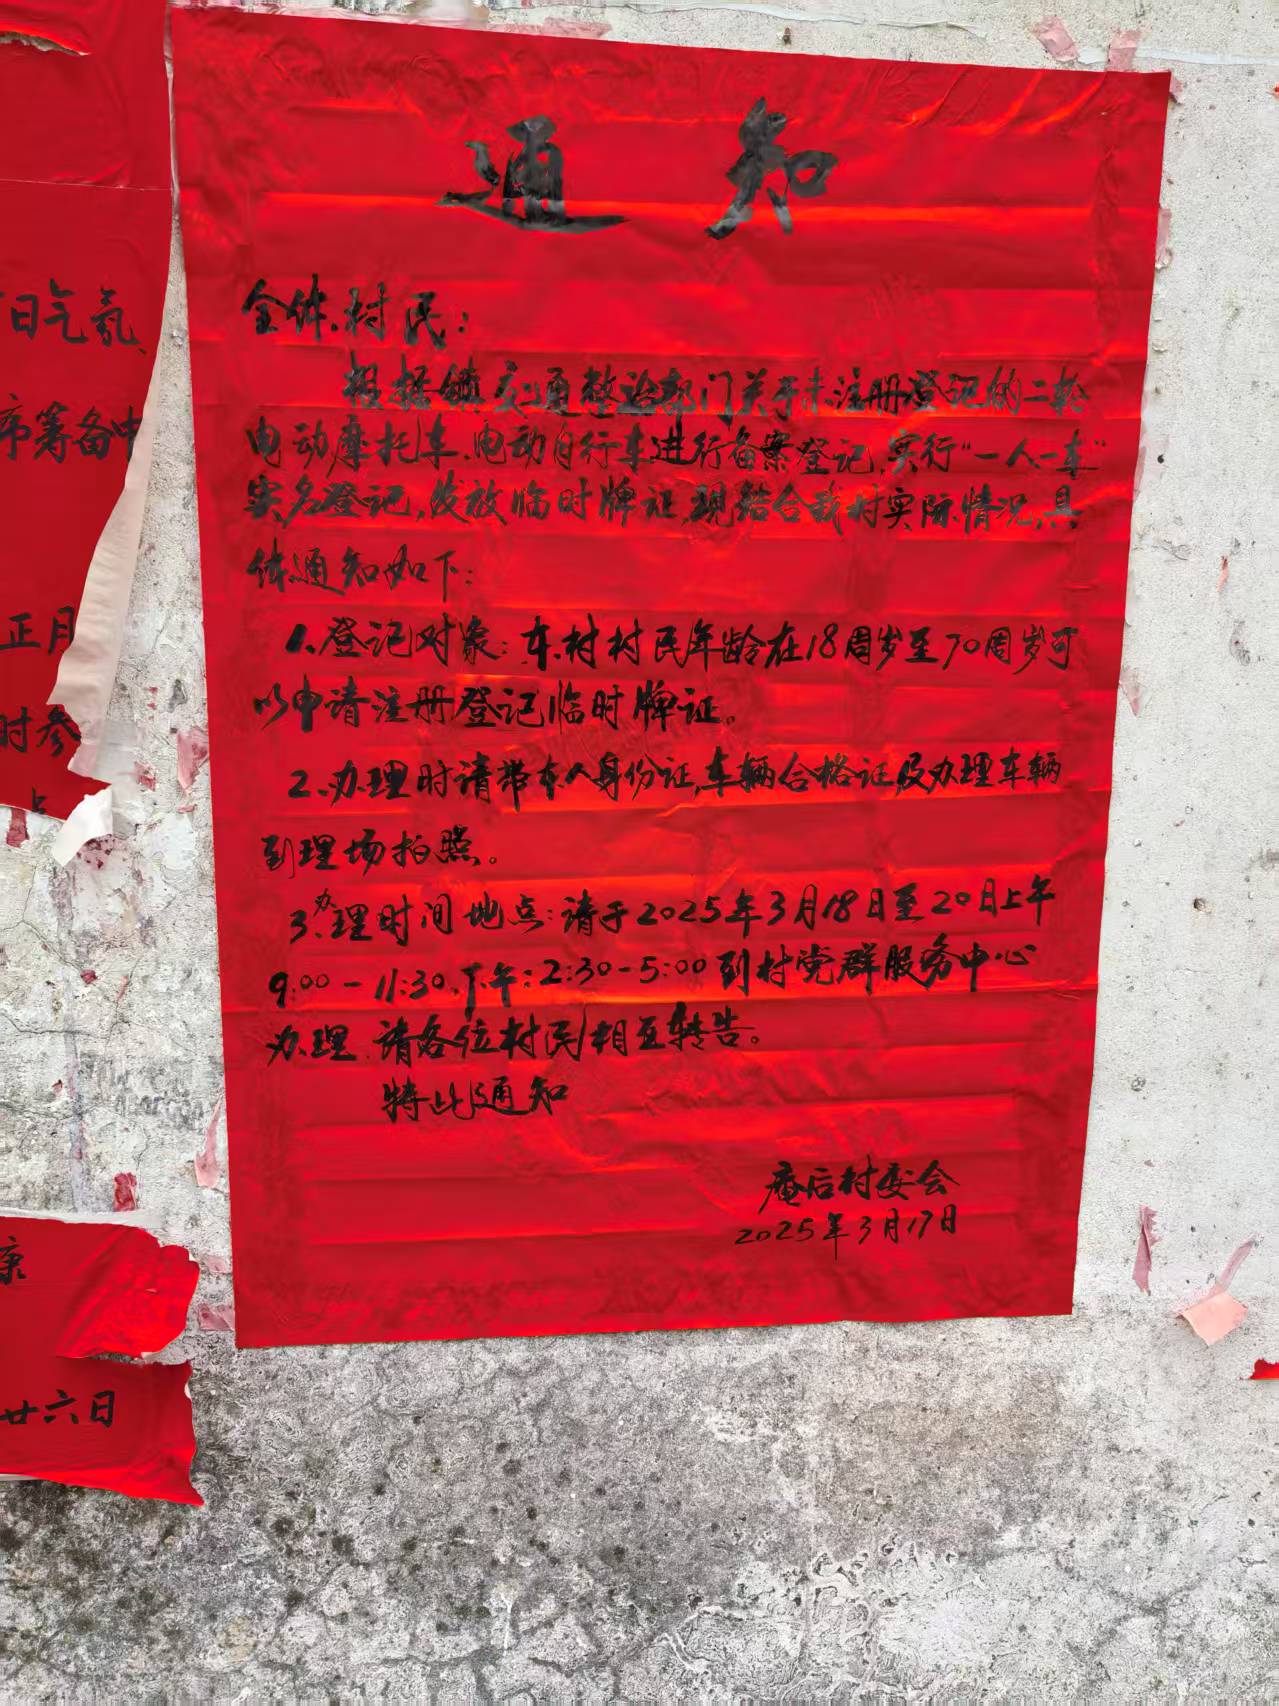 通知
全体村民：
根据镇交通整治部门关于未注册登记的二轮
电动摩托车、电动自行车进行备案登记，实行“一人一车”
实名登记，发放临时牌证，现结合我村实际情况，具
体通知如下：
1、登记对象：本村村民年龄在18周岁至70周岁可
以申请注册登记临时牌证。
2、办理时请带本人身份证，车辆合格证及办理车辆
到理场拍照。
3、办理时间地点：请于2025年3月18日至20日上午
9:00－11:30，下午：2:30－5:00到村党群服务中心
办理，请各位村民相互转告。
特此通知
庵后村委会
2025年3月17日
日气氛、
市筹备中
正月
时参
康
廿六日